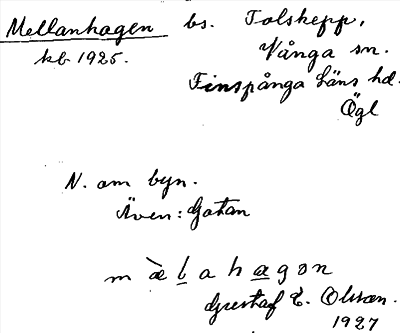 Mellanhagen bs. Tolskepp,
kb 1925. Vånga sn.
Finspånga Läns hd.
Ögl
N. om byn.
Även: Gatan
m æ̀ l a h a g ə n
Gustaf E. Olsson.
1927